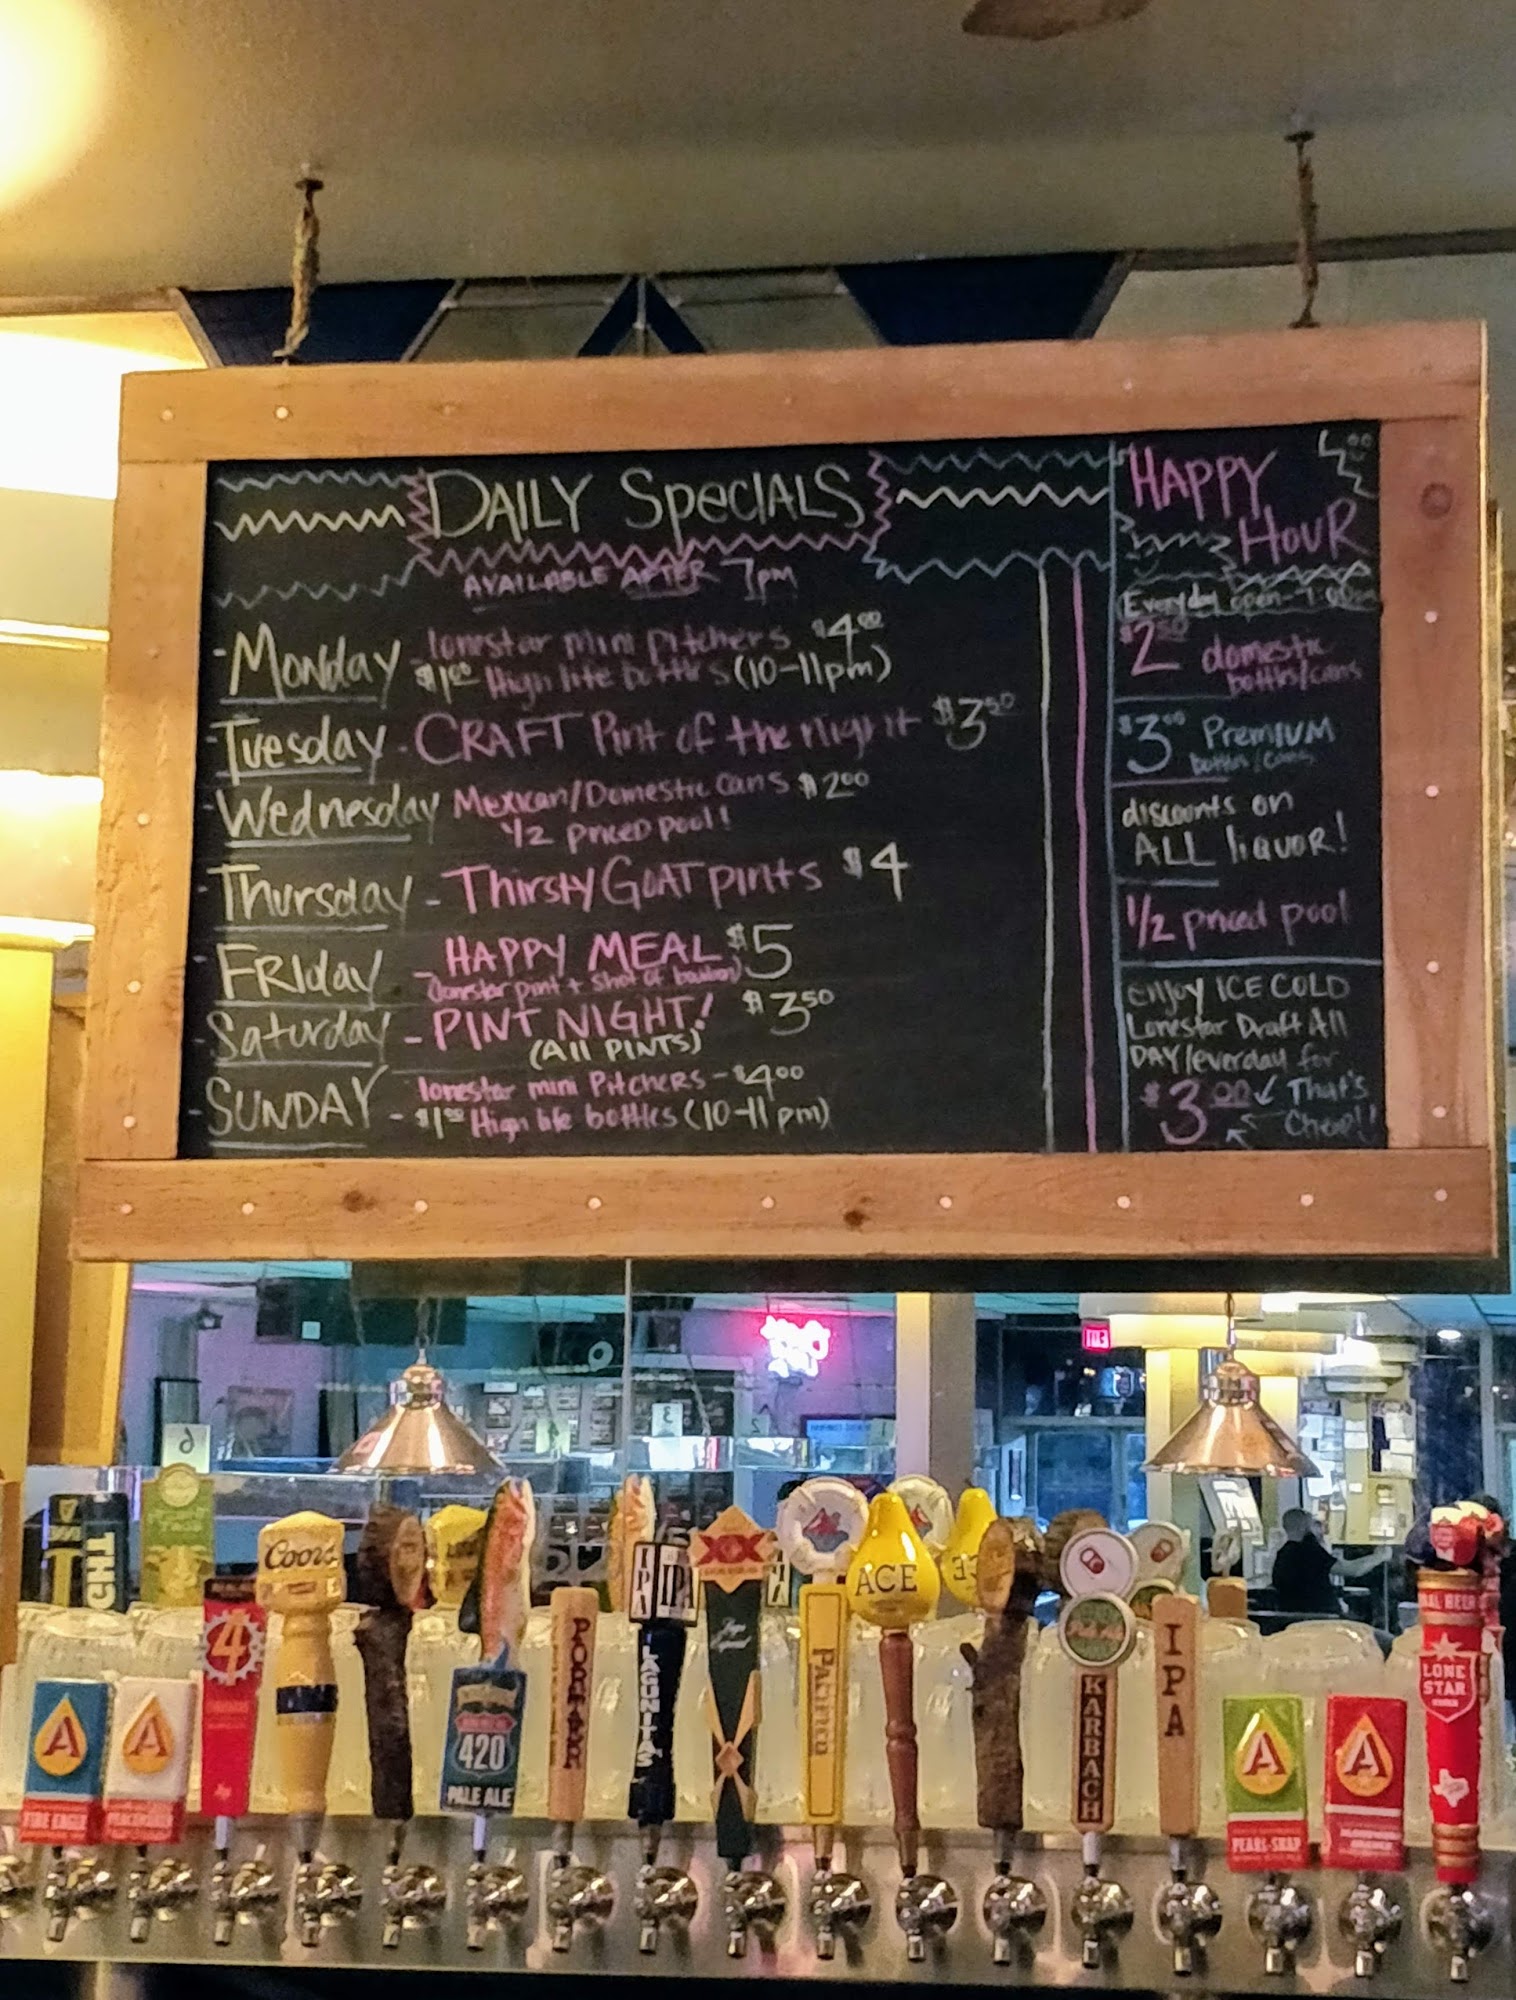 DAILY SpecIALS
AVAILABLE AFTER 7pm
- Monday - lonestar mini pitchers $4.00
$1.00 High life bottles (10-11pm)
- Tuesday - CRAFT Pint of the night $3.50
- Wednesday Mexican/Domestic cans $2.00
1/2 priced pool!
- Thursday - Thirsty GOAT pints $4
- FRIday - HAPPY MEAL $5
(lonestar pint + shot of bourbon)
- Saturday - PINT NIGHT! $3.50
(All PINTS)
- SUNDAY - lonestar mini PitCHERS - $4.00
$1.00 High life bottles (10-11 pm)
HAPPY
HOUR
Everyday open - 7:00pm
$2.50 domestic
bottles/cans
$3.00 PremIUM
bottles/cans
discounts on
ALL liquor!
1/2 priced pool
enjoy ICE COLD
Lonestar Draft All
DAY/everday for
$3.00 That's
Cheap!!
Coors
4
A
FIRE EAGLE
A
420
PALE ALE
IPA
IPA
LAGUNITAS
XX
Paulaner
ACE
Pale Ale
KARBACH
IPA
A
PEARL-SNAP
A
LONE
STAR